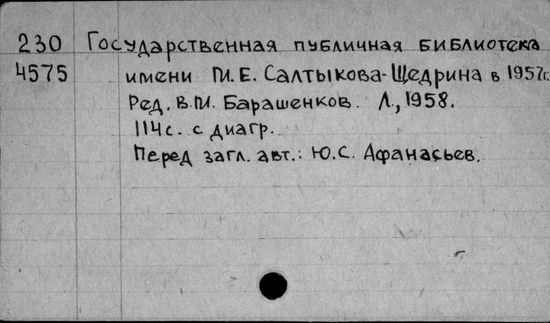 230 Государственная публичная библиотека
4575 имени М.Е. Салтыкова-Щедрина в 1957г.
Ред. В.М. Барашенков. Л., 1958.
114с. с диагр.
Перед загл. авт.: Ю.С. Афанасьев.